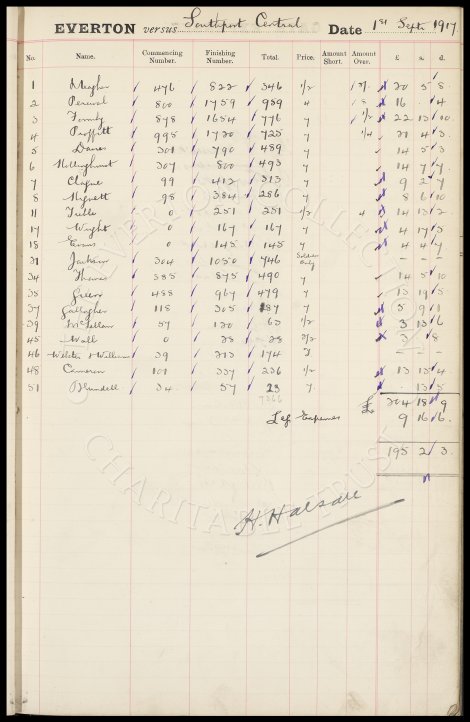 EVERTON versus Southport Central Date 1st Sept. 1917.
No. Name. Commencing Number. Finishing Number. Total. Price. Amount Short. Amount Over. £ s. d.
1 Meagher 476 822 346 1/2 20 5 8
2 Percival 800 1759 959 4 8 16 4
3 878 1654 776 22 13 10
4 Proffitt 995 1720 725 1/4 21 4 3
5 Davies 301 790 489 14 5 3
6 307 800 493 14 7 7
7 Clague 99 412 313 9 2 7
8 Hignett 98 384 286 8 6 10
11 0 251 251 1/2 4 14 13 2
17 Wright 0 167 167 4 17 5
18 Evans 0 145 145 4 4 7
31 Jackson 304 1050 746 Soldiers Only - - -
34 Thomas 385 875 490 14 5 10
35 488 967 479 13 19 5
37 Gallagher 118 305 187 5 9 1
39 McLellan 57 120 63 1/2 3 13 6
45 Wall 0 28 28 3 8
46 Williams 39 213 174 - - -
48 Cameron 101 337 236 1/2 13 15 4
51 Blundell 34 57 23 13 5
7266 £ 204 18 9
Less Expenses 9 16 6
195 2 3
H. Halsall
EVERTON COLLECTION
CHARITABLE TRUST